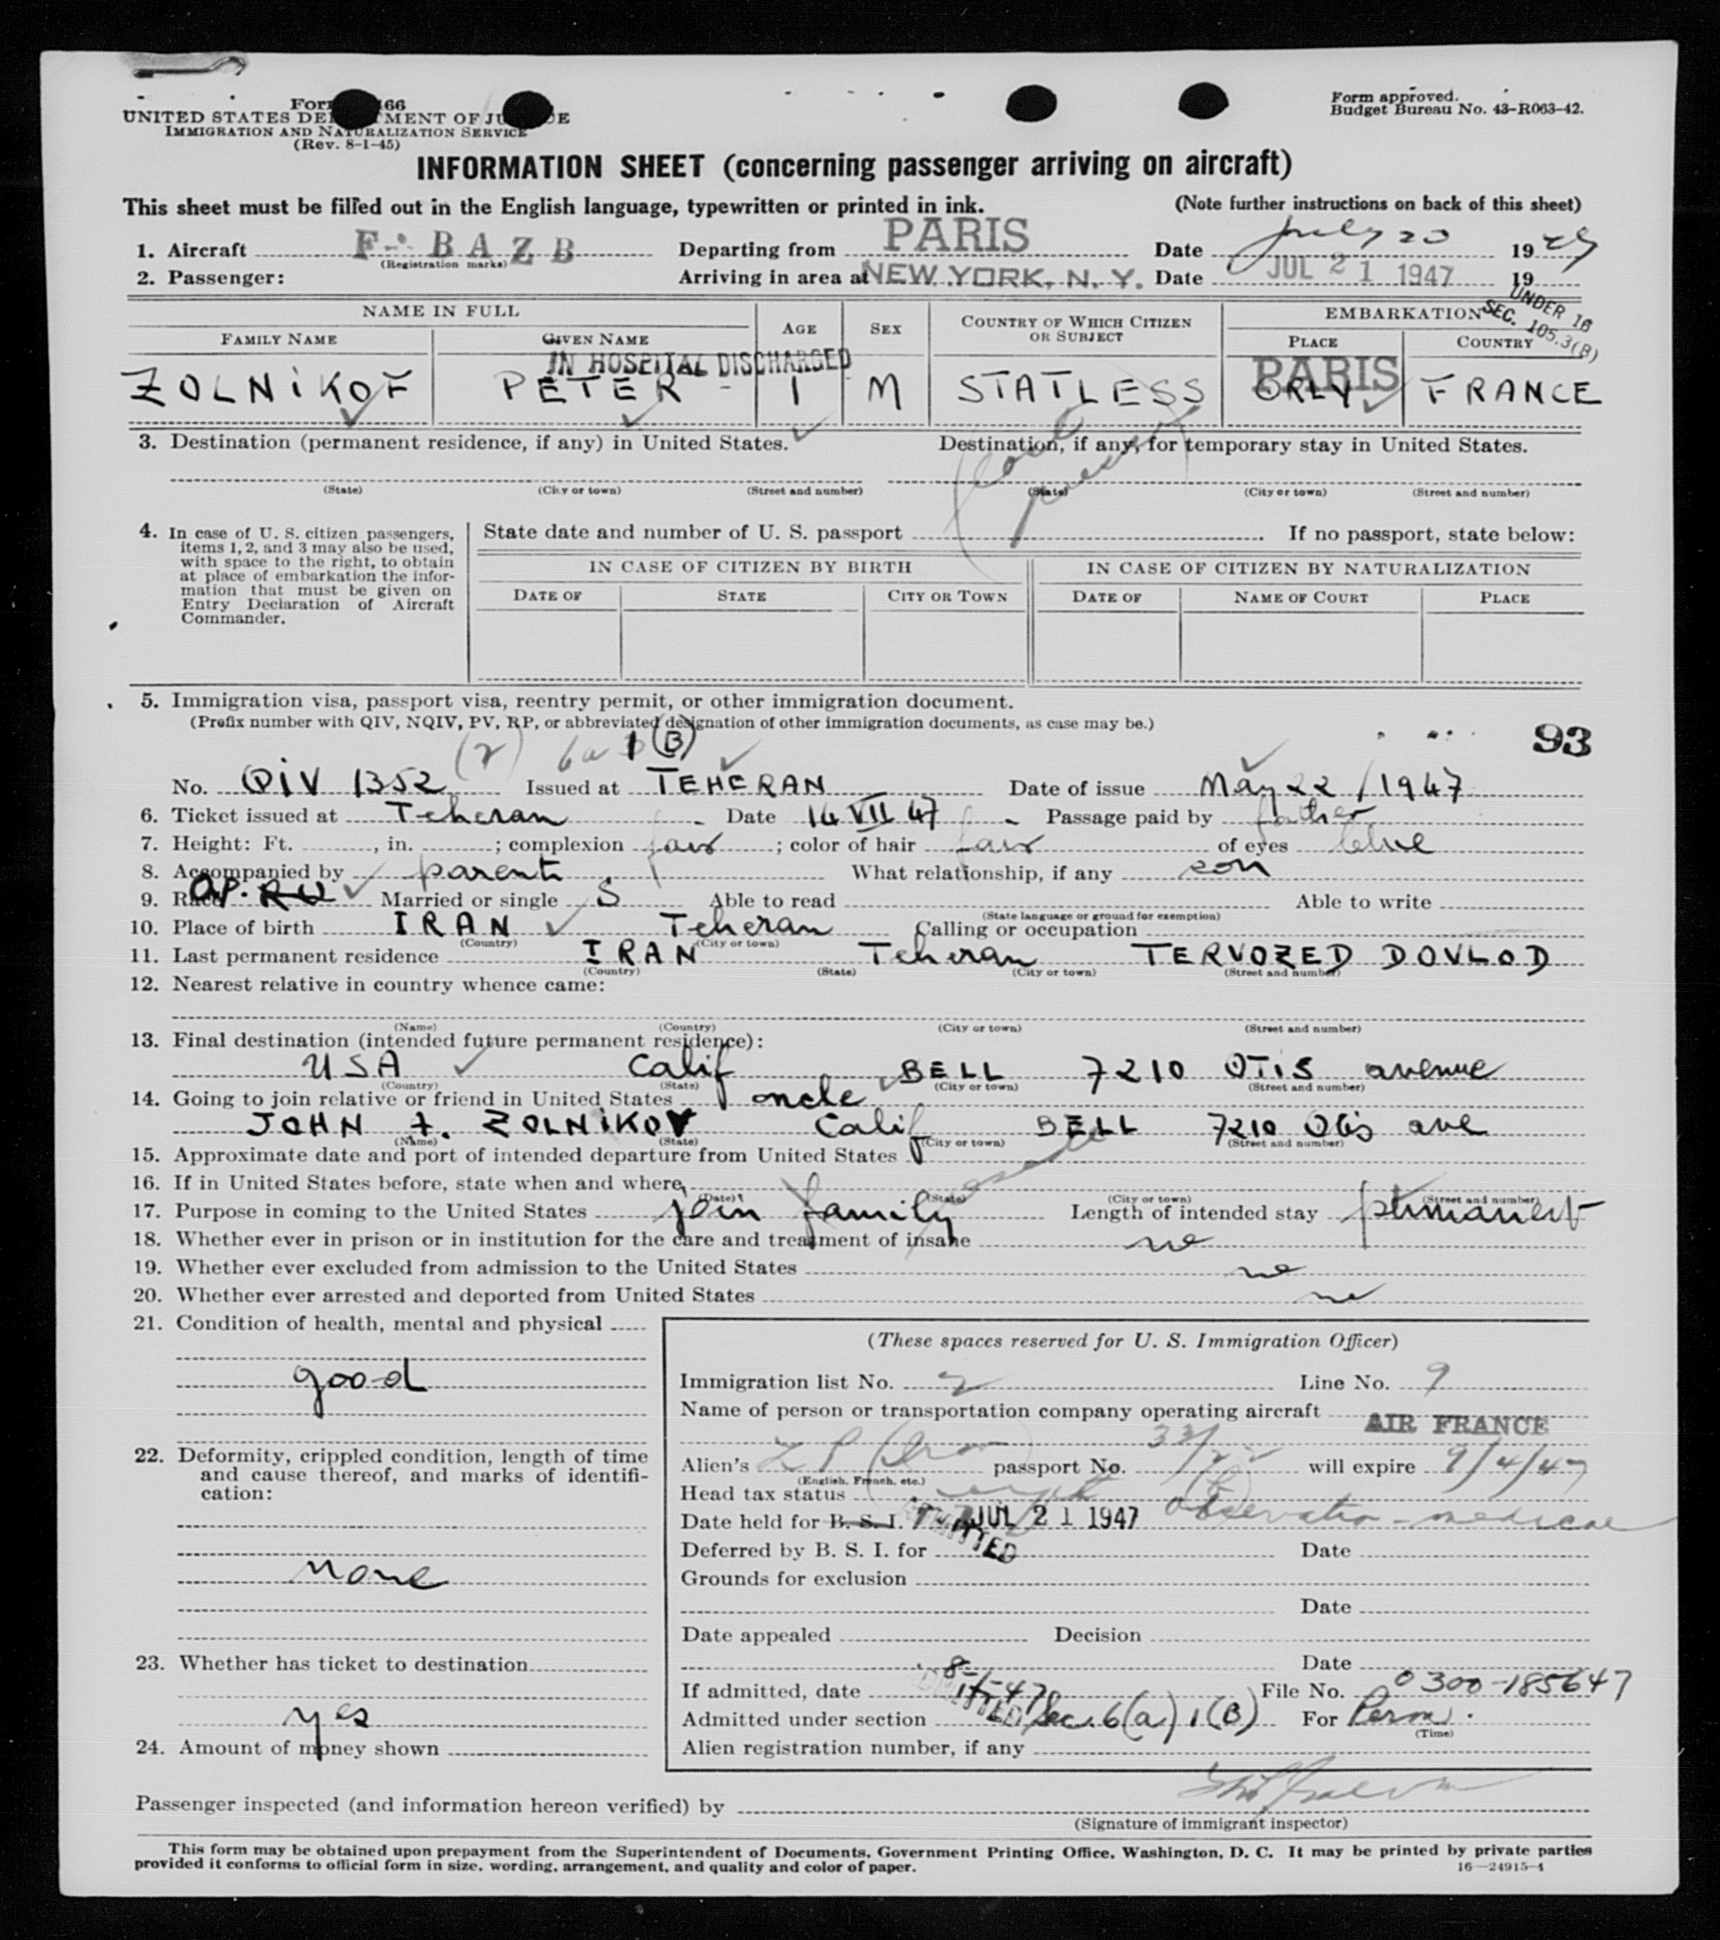 Form 66
UNITED STATES DE MENT OF JU E
IMMIGRATION AND NATURALIZATION SERVICE
(Rev. 8-1-45)
Form approved.
Budget Bureau No. 43-R063-42.
INFORMATION SHEET (concerning passenger arriving on aircraft)
This sheet must be filled out in the English language, typewritten or printed in ink.
(Note further instructions on back of this sheet)
1. Aircraft F-BAZB Departing from PARIS Date July 20 1947
(Registration marks)
2. Passenger: Arriving in area at NEW YORK, N. Y. Date JUL 21 1947 19
UNDER 16
SEC. 105.3(B)
NAME IN FULL AGE SEX COUNTRY OF WHICH CITIZEN OR SUBJECT EMBARKATION
FAMILY NAME GIVEN NAME PLACE COUNTRY
IN HOSPITAL DISCHARGED
PARIS
ZOLNIKOF PETER - 1 M STATLESS ORLY FRANCE
3. Destination (permanent residence, if any) in United States. Destination, if any, for temporary stay in United States.
(State) (City or town) (Street and number) (State) (City or town) (Street and number)
4. In case of U. S. citizen passengers, items 1, 2, and 3 may also be used, with space to the right, to obtain at place of embarkation the information that must be given on Entry Declaration of Aircraft Commander.
State date and number of U. S. passport If no passport, state below:
IN CASE OF CITIZEN BY BIRTH IN CASE OF CITIZEN BY NATURALIZATION
DATE OF STATE CITY OR TOWN DATE OF NAME OF COURT PLACE
5. Immigration visa, passport visa, reentry permit, or other immigration document.
(Prefix number with QIV, NQIV, PV, RP, or abbreviated designation of other immigration documents, as case may be.)
93
(2) 6a 1 (B)
No. QIV 1352 Issued at TEHERAN Date of issue May 22 / 1947
6. Ticket issued at Teheran Date 14 VII 47 Passage paid by father
7. Height: Ft. , in. ; complexion fair ; color of hair fair of eyes blue
8. Accompanied by parents What relationship, if any son
9. Race RU Married or single S Able to read Able to write
(State language or ground for exemption)
10. Place of birth IRAN Teheran Calling or occupation
(Country) (City or town)
11. Last permanent residence IRAN Teheran TERVOZED DOVLOD
(Country) (State) (City or town) (Street and number)
12. Nearest relative in country whence came:
(Name) (Country) (City or town) (Street and number)
13. Final destination (intended future permanent residence):
USA Calif BELL 7210 OTIS avenue
(Country) (State) (City or town) (Street and number)
14. Going to join relative or friend in United States oncle
JOHN ZOLNIKOV Calif BELL 7210 Otis ave
(Name) (State) (City or town) (Street and number)
15. Approximate date and port of intended departure from United States
16. If in United States before, state when and where
(Date) (State) (City or town) (Street and number)
17. Purpose in coming to the United States join family Length of intended stay permanent
18. Whether ever in prison or in institution for the care and treatment of insane no
19. Whether ever excluded from admission to the United States no
20. Whether ever arrested and deported from United States no
21. Condition of health, mental and physical
good
22. Deformity, crippled condition, length of time and cause thereof, and marks of identification:
None
23. Whether has ticket to destination
yes
24. Amount of money shown
(These spaces reserved for U. S. Immigration Officer)
Immigration list No. 2 Line No. 9
Name of person or transportation company operating aircraft AIR FRANCE
Alien's passport No. will expire 9/4/47
(English, French, etc.)
Head tax status
Date held for B. S. I. JUL 21 1947 Observation - medical
Deferred by B. S. I. for Date
Grounds for exclusion
Date
Date appealed Decision
Date
If admitted, date 8-1-47 File No. 0300-185647
Admitted under section Sec. 6(a) 1(B) For Perm.
(Time)
Alien registration number, if any
Passenger inspected (and information hereon verified) by
(Signature of immigrant inspector)
This form may be obtained upon prepayment from the Superintendent of Documents, Government Printing Office, Washington, D. C. It may be printed by private parties
provided it conforms to official form in size, wording, arrangement, and quality and color of paper.
16—24915-4